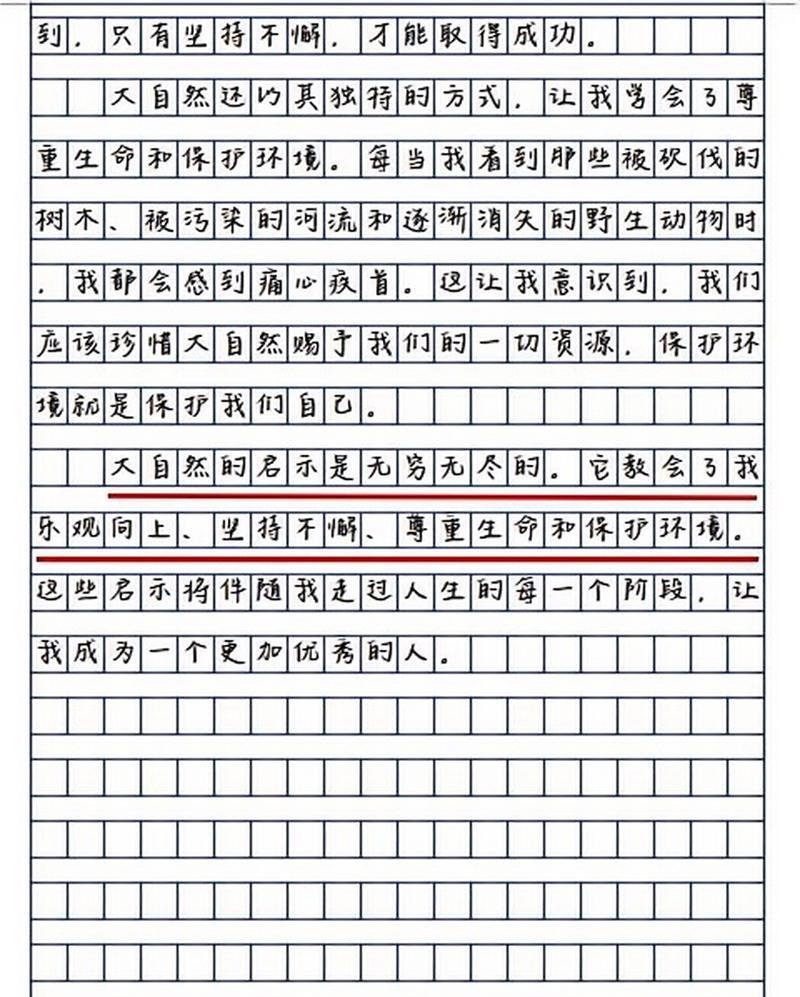 到，只有坚持不懈，才能取得成功。
大自然还以其独特的方式，让我学会了尊
重生命和保护环境。每当我看到那些被砍伐的
树木、被污染的河流和逐渐消失的野生动物时
，我都会感到痛心疾首。这让我意识到，我们
应该珍惜大自然赐予我们的一切资源，保护环
境就是保护我们自己。
大自然的启示是无穷无尽的。它教会了我
乐观向上、坚持不懈、尊重生命和保护环境。
这些启示将伴随我走过人生的每一个阶段，让
我成为一个更加优秀的人。